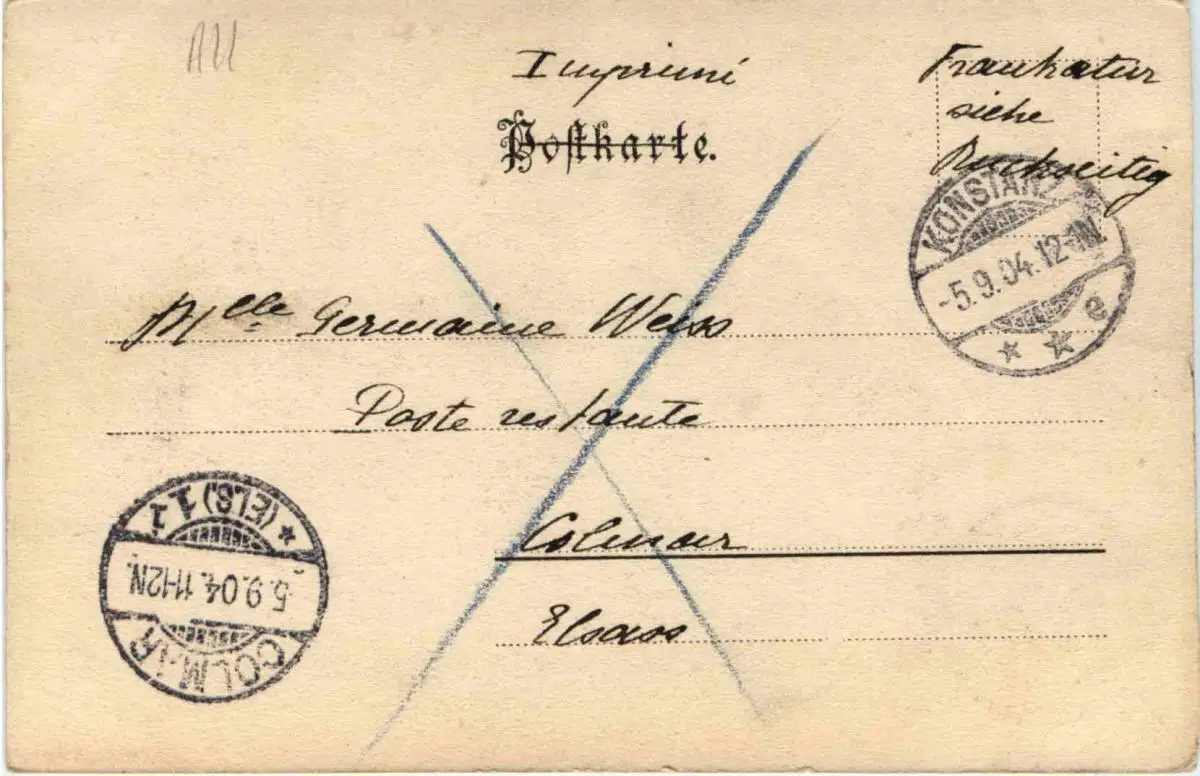 All
Imprimé
Postkarte.
Frankatur
siehe
Rückseitig
KONSTANZ
-5.9.04.12-1N.
* * e
Mlle Germaine Weiss
Poste restante
Colmar
Elsass
* (ELS) 11
5.9.04.11-12N.
COLMAR